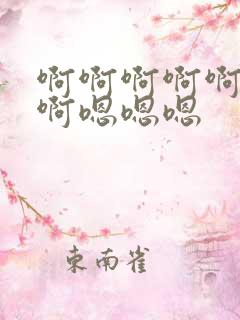 啊啊啊啊啊
啊嗯嗯嗯
東南雀